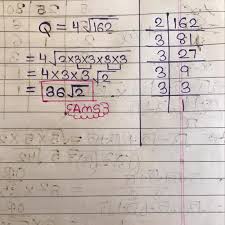 Q = 4√162
= 4√2×3×3×3×3
= 4×3×3√2
= 36√2
Ans
2 | 162
3 | 81
3 | 27
3 | 9
3 | 3
1